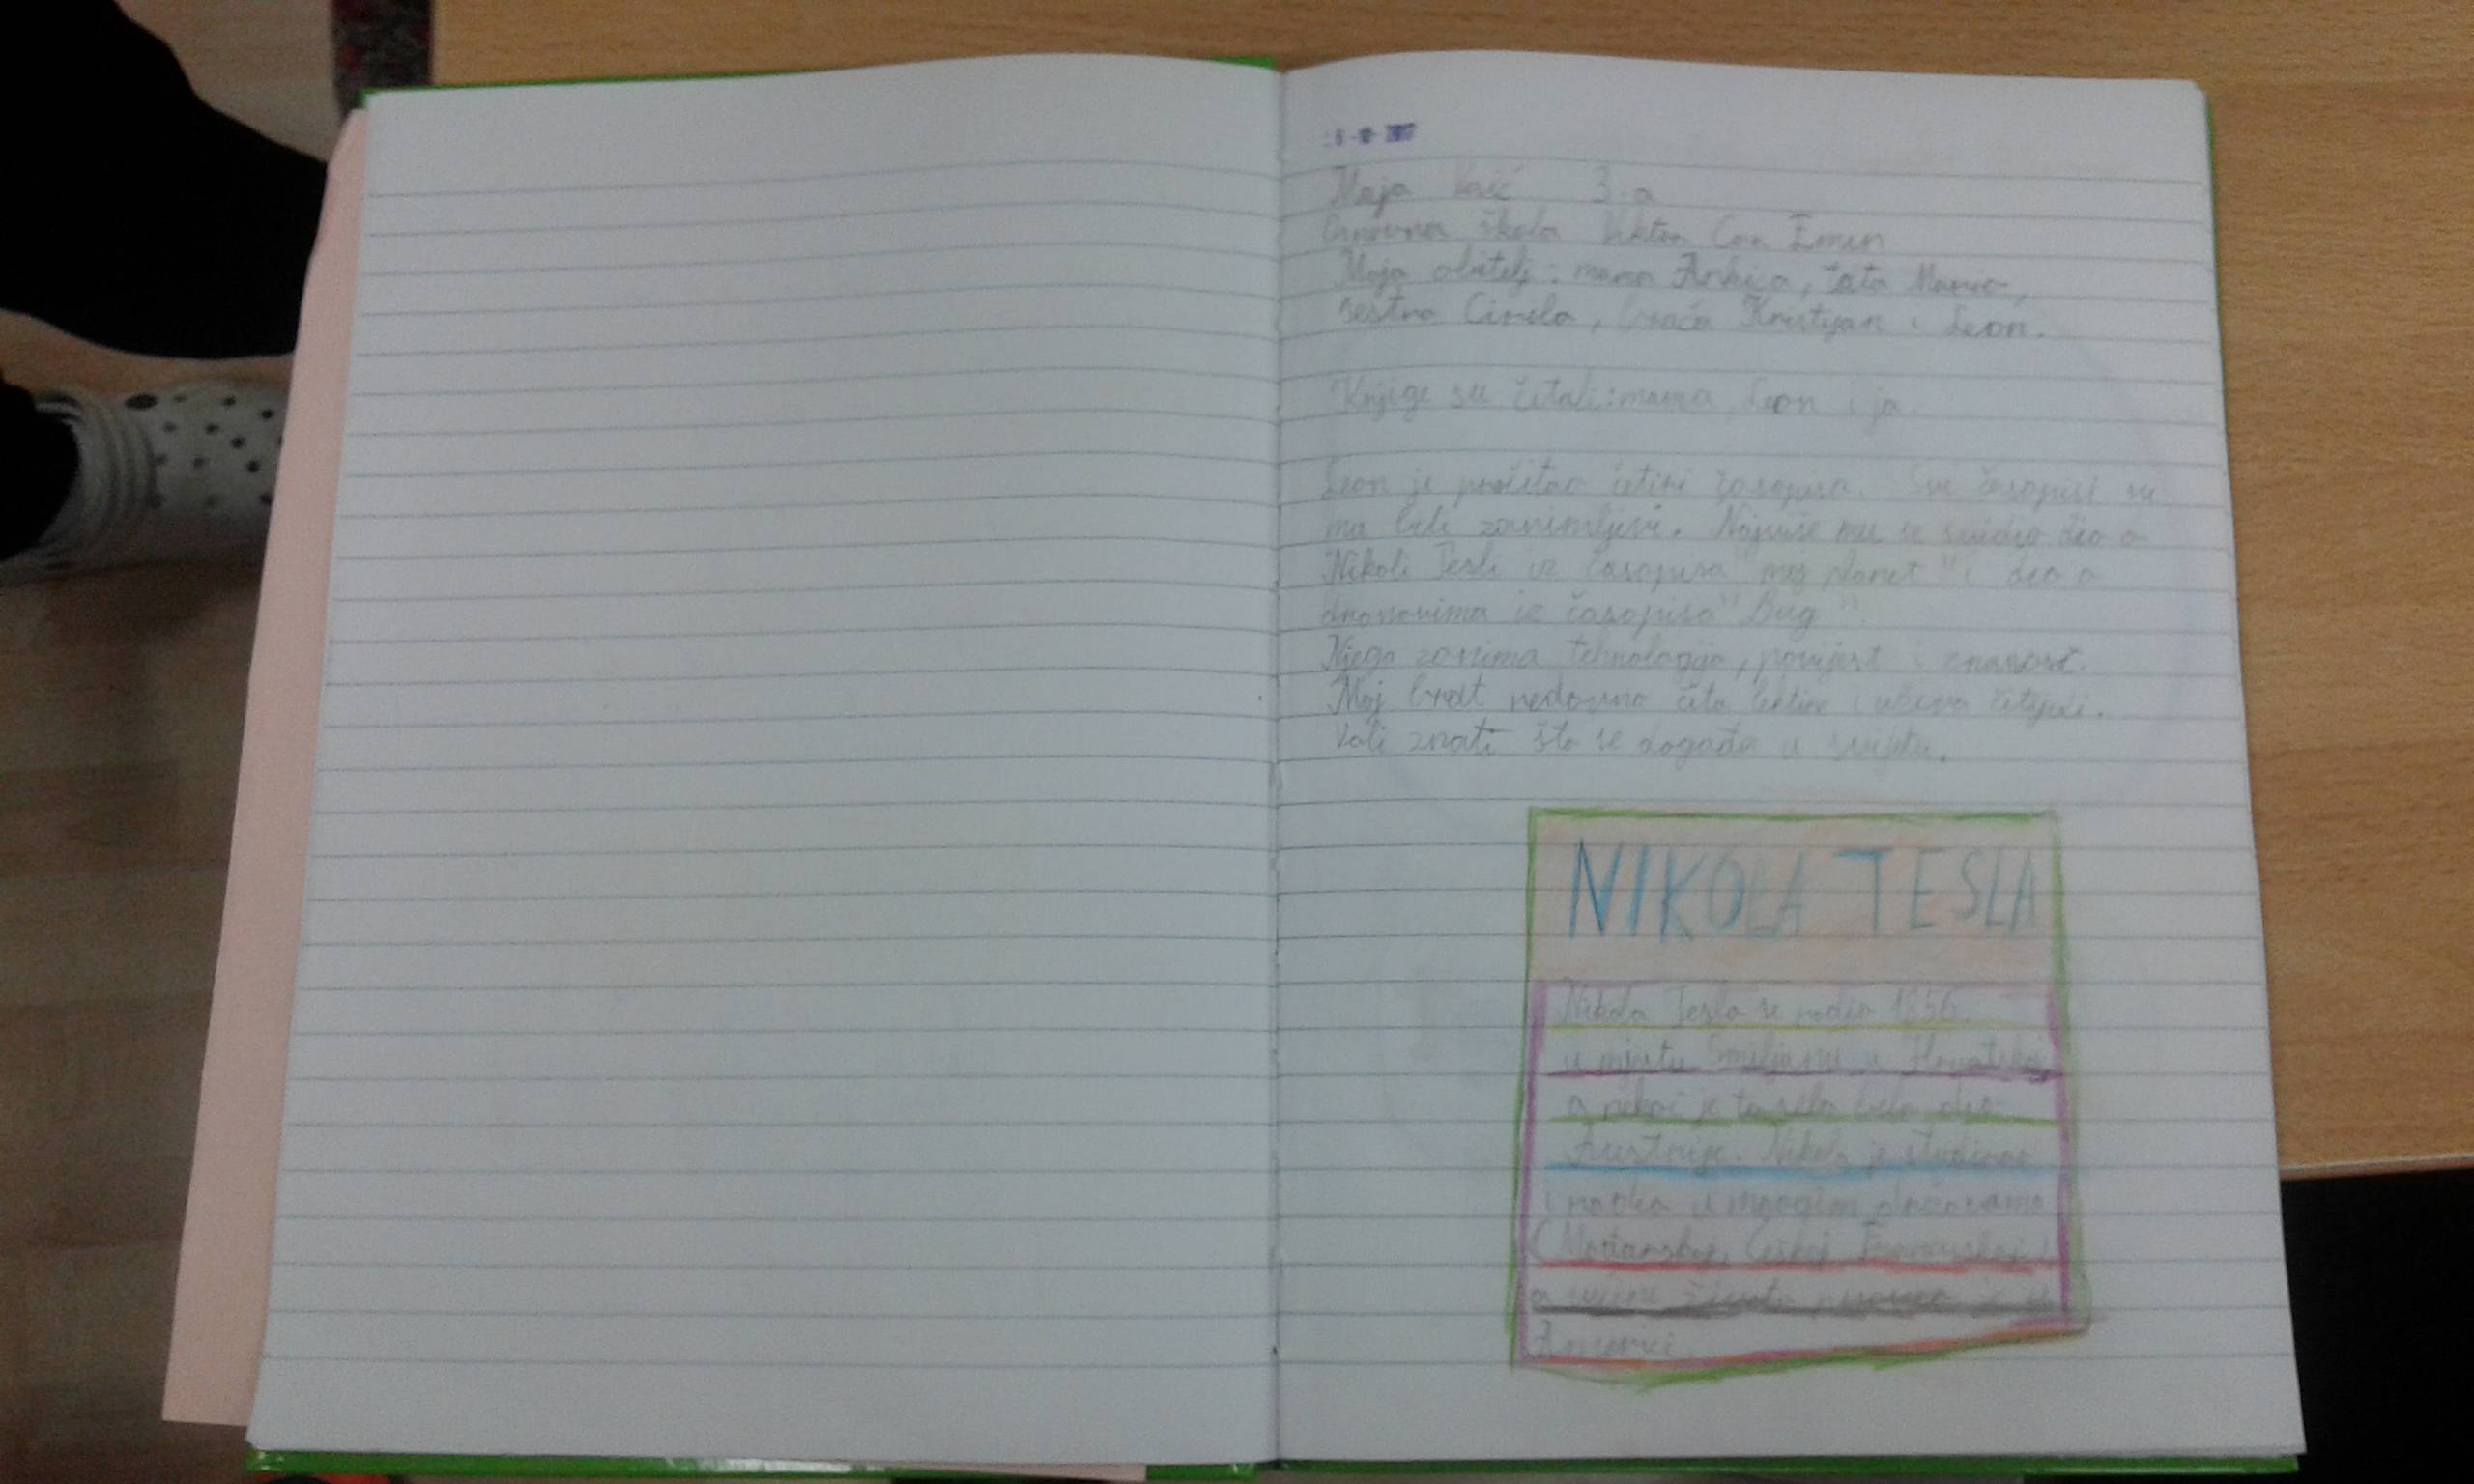 Maja 3.a
Osnovna škola Viktor Car Emin
Moja obitelj: mama Ankica, tata Mario,
sestra braća Kristijan i Leon.
Knjige su čitali: mama, Leon i ja.
Leon je pročitao četiri časopisa. Svi časopisi su
mu bili zanimljivi. Najviše mu se svidio dio o
Nikoli Tesli iz časopisa "moj planet" i dio o
dronovima iz časopisa "Bug".
Njega zanima tehnologija, povijest i znanost.
Moj brat redovno čita lektire i uživa čitajući.
Voli znati što se događa u svijetu.
NIKOLA TESLA
Nikola Tesla se rodio 1856.
u mjestu Smiljanu u Hrvatskoj
a nekoć je to selo bilo dio
Austrije. Nikola je studirao
i radio u mnogim državama
(Mađarskoj, Češkoj, Francuskoj)
a života proveo je u
Americi.